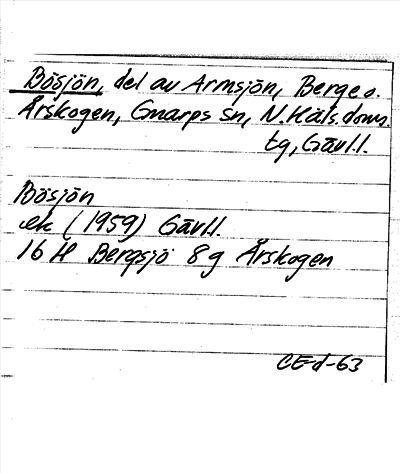 Bösjön, del av Armsjön, Berge o.
Årskogen, Gnarps sn, N.Häls.doms.
tg, Gävl.l.
Bösjön
ek (1959) Gävl.l.
16 H Bergsjö 8 g Årskogen
CE-d-63